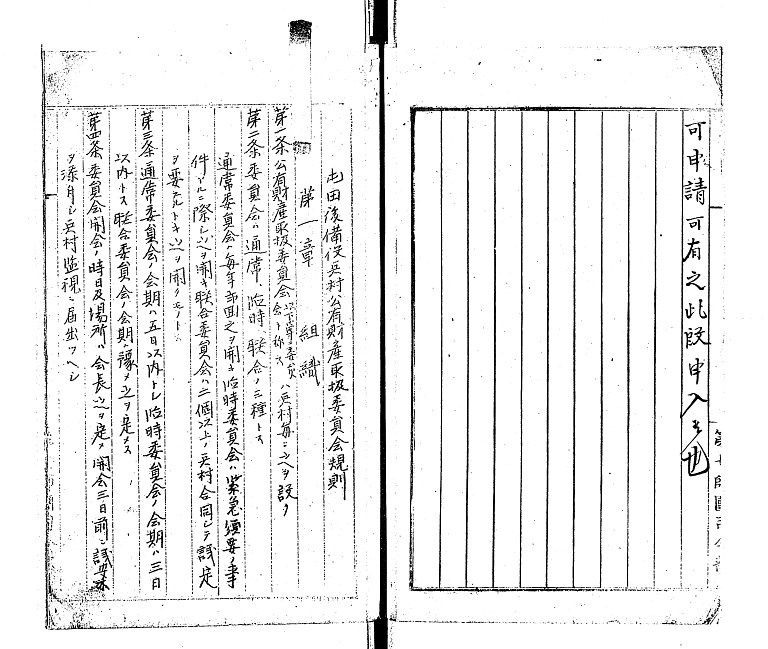 可申請可有之此段申入候也
第七師團司令部
屯田後備役兵村公有財産取扱委員会規則
第一章 組織
第一条 公有財産取扱委員会以下単ニ委員会ト称スハ兵村毎ニ之ヲ設ク
第二条 委員会ハ通常臨時聯合ノ三種トス
通常委員会ハ毎年 之ヲ開キ臨時委員会ハ緊急須要ノ事
件アルニ際シ之ヲ開キ聯合委員会ハ二個以上ノ兵村合同シテ議定
ヲ要スルトキ之ヲ開クモノトス
第三条 通常委員会ノ会期ハ五日以内トシ臨時委員会ノ会期ハ三日
以内トス聯合委員会ノ会期ハ豫メ之ヲ定ム
第四条 委員会開会ノ時日及場所ハ会長之ヲ定メ開会三日前ニ議案
ヲ添ヘ兵村監視ニ届出ツヘシ